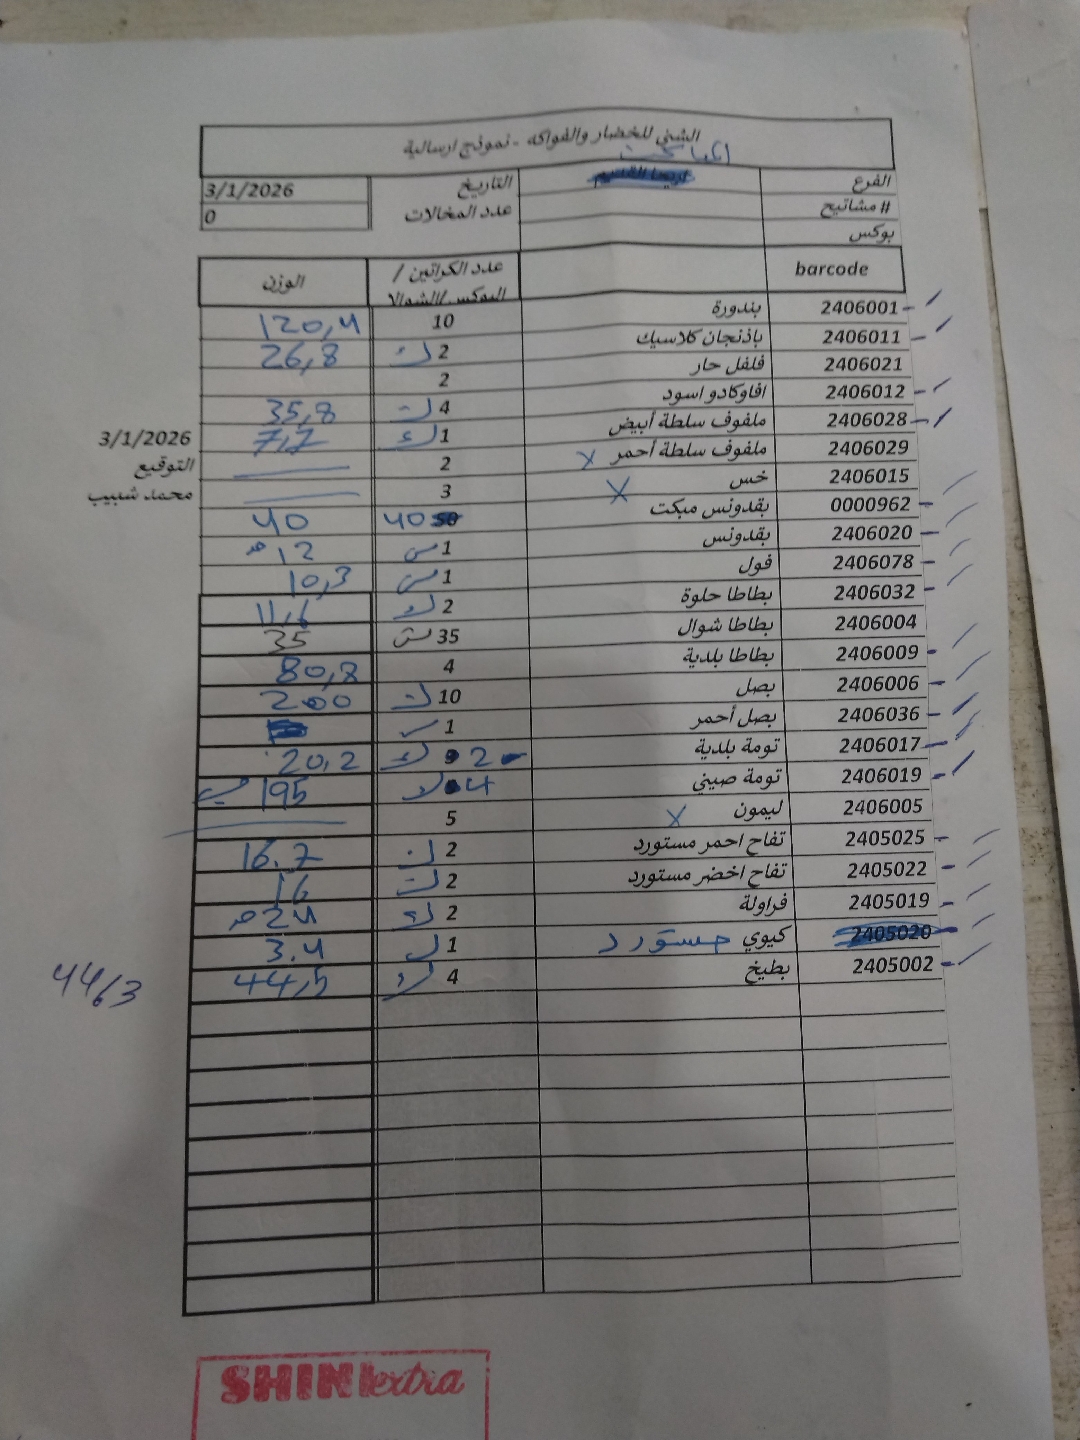 الشني للخضار والفواكه - نموذج ارسالية
الفرع
التاريخ 3/1/2026
# مشاتيح
عدد المخالات 0
بوكس
barcode عدد الكراتين / البوكس/الشوالا الوزن
2406001 بندورة 10 120,4
2406011 باذنجان كلاسيك 2 ك 26,8
2406021 فلفل حار 2
2406012 افاوكادو اسود 4 ك 35,8
2406028 ملفوف سلطة أبيض 1 ك 7,7
2406029 ملفوف سلطة أحمر x 2
2406015 خس x 3
0000962 بقدونس مبكت 40 40
2406020 بقدونس 1 12
2406078 فول 1 10,3
2406032 بطاطا حلوة 2 11,6
2406004 بطاطا شوال 35 35
2406009 بطاطا بلدية 4 80,8
2406006 بصل 10 200
2406036 بصل أحمر 1
2406017 تومة بلدية 2 20,2
2406019 تومة صيني 4 195
2406005 ليمون x 5
2405025 تفاح احمر مستورد 2 16.7
2405022 تفاح اخضر مستورد 2 16
2405019 فراولة 2 24
2405020 كيوي مستورد 1 3.4
2405002 بطيخ 4 44,5
3/1/2026
التوقيع
محمد شبيب
44/3
SHINI extra